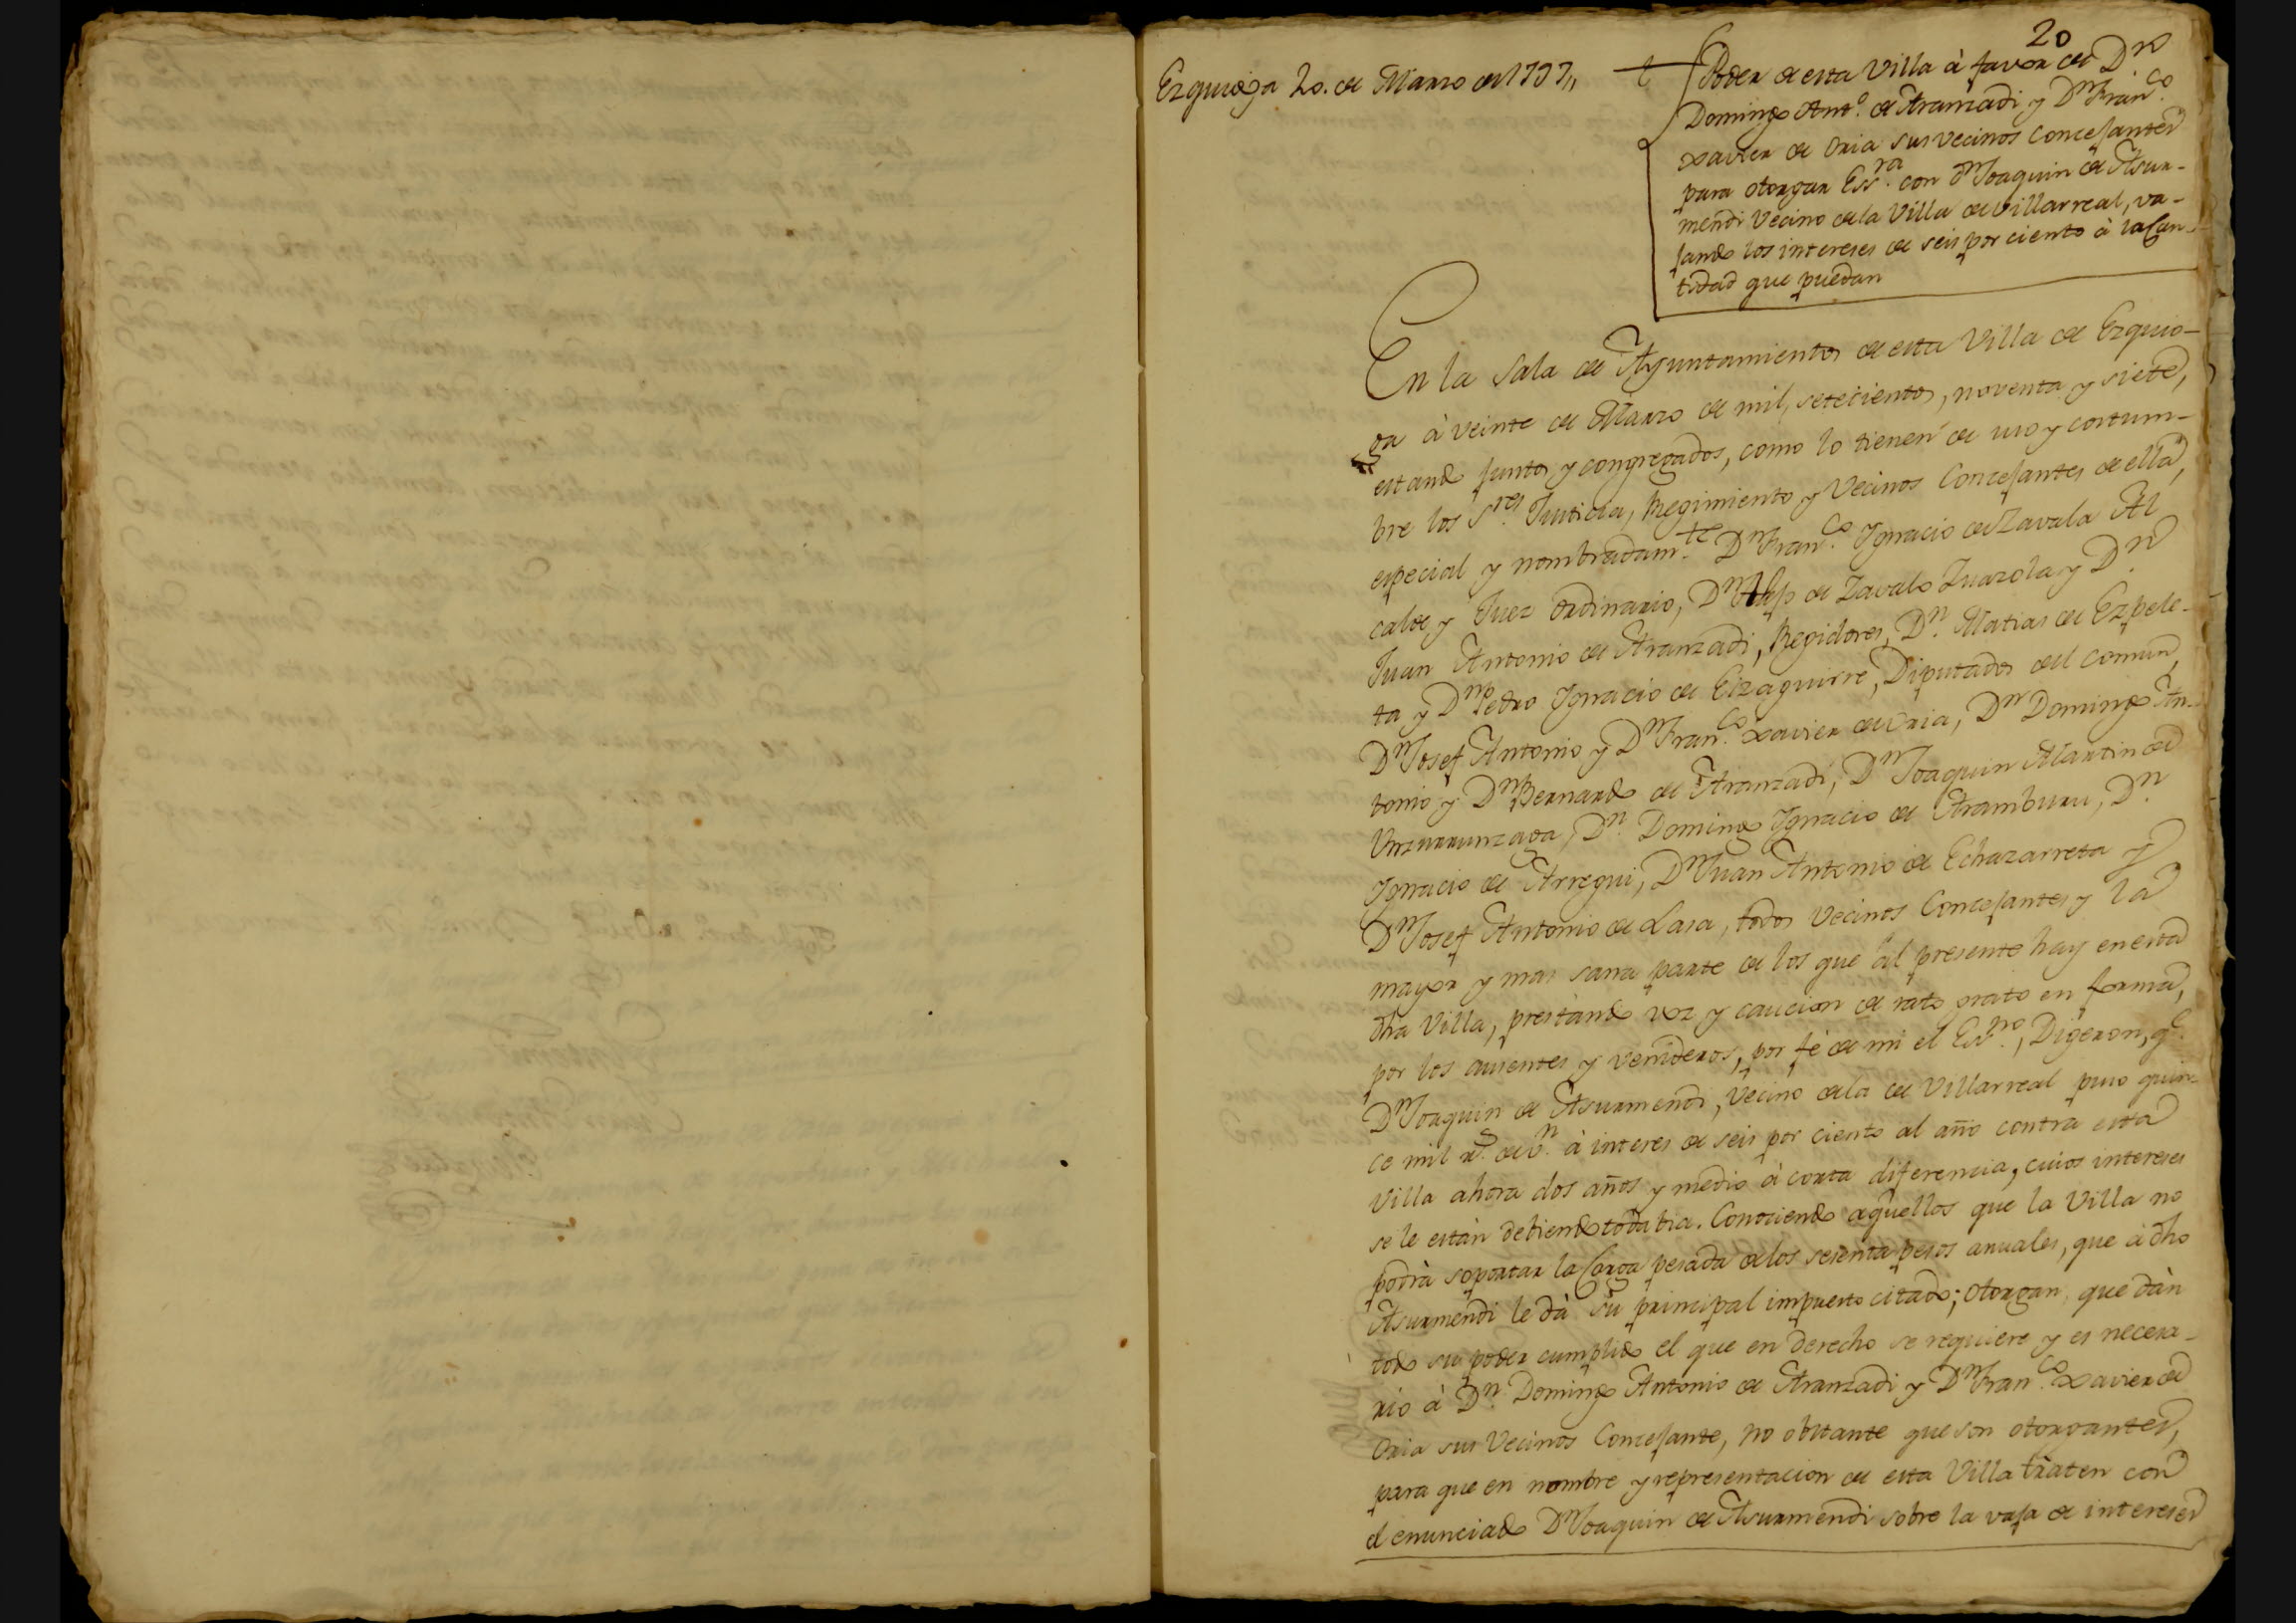 20
Ezquioga 20. de Marzo de 1797,,
Poder de esta Villa à favor de Dn
Domingo Anto. de Aranzadi y Dn Franco.
Xavier de Oria sus Vecinos Concejantes
para otorgar Essra. con Dn Joaquin de Asur-
mendi Vecino de la Villa de Villarreal, va-
jando los intereses de seis por ciento à la Can-
tidad que puedan
En la Sala de Ayuntamientos de esta Villa de Ezquio-
ga à veinte de Marzo de mil, setecientos, noventa y siete,
estando juntos y congregados, como lo tienen de uso y costum-
bre los Sres. Justicia, Regimiento y Vecinos Concejantes de ella,
especial y nombradamte. Dn Franco. Ignacio de Zavala Al
calde y Juez Ordinario, Dn de Zavalo Zuazola y Dn.
Juan Antonio de Aranzadi, Regidores, Dn. Matias de Ezpele-
ta y Dn Pedro Ignacio de Eizaguirre, Diputados del comun,
Dn Josef Antonio y Dn Franco. Xavier de Oria, Dn Domingo An-
tonio y Dn Bernardo de Aranzadi, Dn Joaquin Martin de
Urzurrunzaga, Dn. Domingo Ignacio de Aramburu, Dn.
Ignacio de Arregui, Dn Juan Antonio de Echazarreta y
Dn Josef Antonio de Lasa, todos Vecinos Concejantes y la
mayor y mas sana parte de los que al presente hay en esta
dha Villa, prestando voz y caucion de rato grato en forma,
por los ausentes y venideros, por fè de mi el Essno., Digeron, qe.
Dn Joaquin de Asurmendi, Vecino de la de Villarreal puso quin-
ce mil rs. de vn. à interes de seis por ciento al año contra esta
Villa ahora dos años y medio à corta diferencia, cuios intereses
se le estàn debiendo todabia. Conociendo aquellos que la Villa no
podrà soportar la Carga pesada de los sesenta pesos anuales, que à dho
Asurmendi le dà su principal impuesto citado; Otorgan, que dàn
todo su poder cumplido el que en derecho se requiere y es necesa-
rio à Dn. Domingo Antonio de Aranzadi y Dn Franco. Xavier de
Oria sus Vecinos Concejante, no obstante que son otorgantes,
para que en nombre y representacion de esta Villa traten con
el enunciado Dn Joaquin de Asurmendi sobre la vaja de intereses